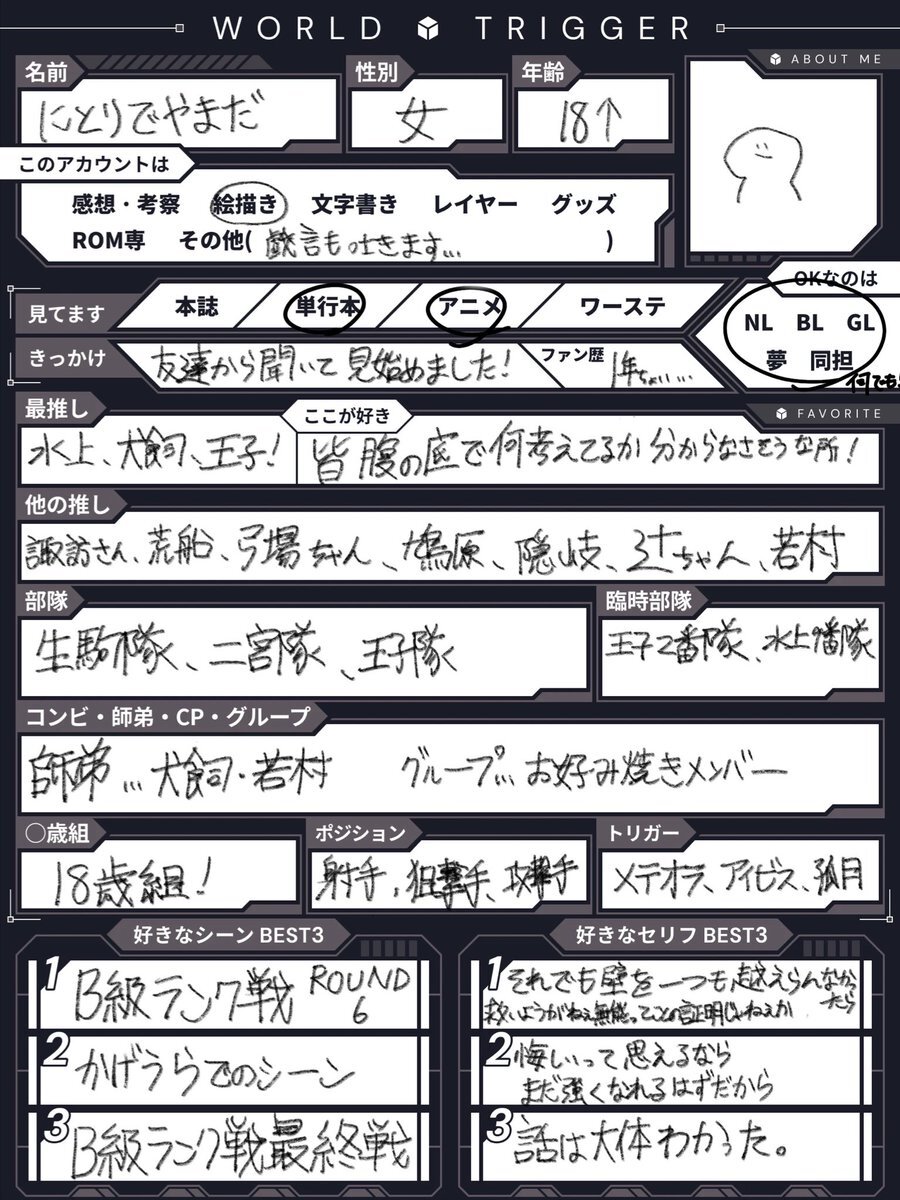 WORLD TRIGGER
ABOUT ME
名前
にとりでやまだ
性別
女
年齢
18↑
このアカウントは
感想・考察 絵描き 文字書き レイヤー グッズ
ROM専 その他(戯言も吐きます… )
見てます
本誌 単行本 アニメ ワーステ
OKなのは
NL BL GL
夢 同担
何でも!
きっかけ
友達から聞いて見始めました!
ファン歴
1年ちょい…
FAVORITE
最推し
水上、犬飼、王子!
ここが好き
皆腹の底で何考えてるか分からなさそうな所!
他の推し
諏訪さん、荒船、弓場ちゃん、鳩原、隠岐、辻ちゃん、若村
部隊
生駒隊、二宮隊、王子隊
臨時部隊
王子2番隊、水上9番隊
コンビ・師弟・CP・グループ
師弟…犬飼・若村 グループ…お好み焼きメンバー
〇歳組
18歳組!
ポジション
射手,狙撃手、攻撃手
トリガー
メテオラ、アイビス、孤月
好きなシーン BEST3
1 B級ランク戦 ROUND 6
2 かげうらでのシーン
3 B級ランク戦最終戦
好きなセリフ BEST3
1 それでも壁を一つも越えらんなかったら
救いようがねぇ無能ってことの証明じゃねぇか
2 悔しいって思えるなら
まだ強くなれるはずだから
3 話は大体わかった。